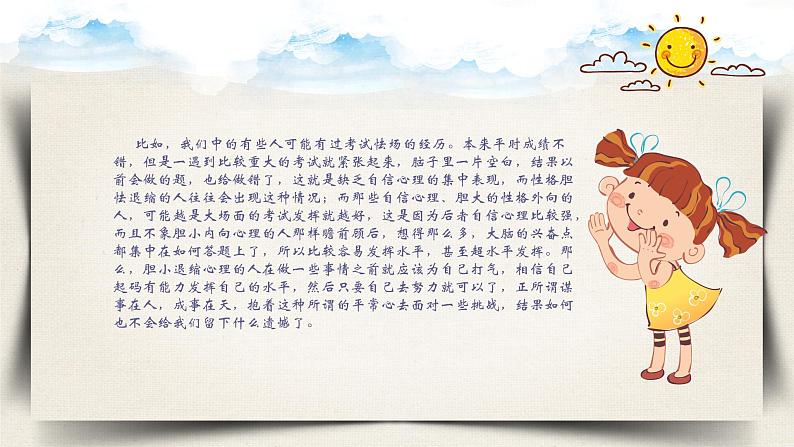 比如，我们中的有些人可能有过考试怯场的经历。本来平时成绩不
错，但是一遇到比较重大的考试就紧张起来，脑子里一片空白，结果以
前会做的题，也给做错了，这就是缺乏自信心理的集中表现，而性格胆
怯退缩的人往往会出现这种情况；而那些自信心理、胆大的性格外向的
人，可能越是大场面的考试发挥就越好，这是因为后者自信心理比较强，
而且不象胆小内向心理的人那样瞻前顾后，想得那么多，大脑的兴奋点
都集中在如何答题上了，所以比较容易发挥水平，甚至超水平发挥。那
么，胆小退缩心理的人在做一些事情之前就应该为自己打气，相信自己
起码有能力发挥自己的水平，然后只要自己去努力就可以了，正所谓谋
事在人，成事在天，抱着这种所谓的平常心去面对一些挑战，结果如何
也不会给我们留下什么遗憾了。